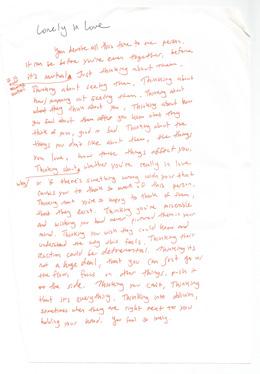 Lonely in Love
You devote all this time to one person,
it can be before you've even together, before
it's mutual. Just thinking about them.
Thinking about seeing them. Thinking about
how/ not seeing them. Thinking about
what they think about you. Thinking about how
you feel about them after you know what they
think of you, good or bad. Thinking about the
things you don't like about them, the things
you love, how those things effect you.
Thinking about whether you're really in love
why/ or if there's something wrong with you that
causes you to think so much of this person.
Thinking that you're happy to think of them,
that they exist. Thinking you're miserable
and wishing you had never planned them in your
mind. Thinking you wish they could know and
understand the way this feels. Thinking their
reaction could be detrimental. Thinking its
not a huge deal, that you can just go w/
the flow, focus on other things, push it
to the side. Thinking you can't. Thinking
that it's everything. Thinking into oblivion,
sometimes when they are right next to you
holding your hand. You feel so lonely.